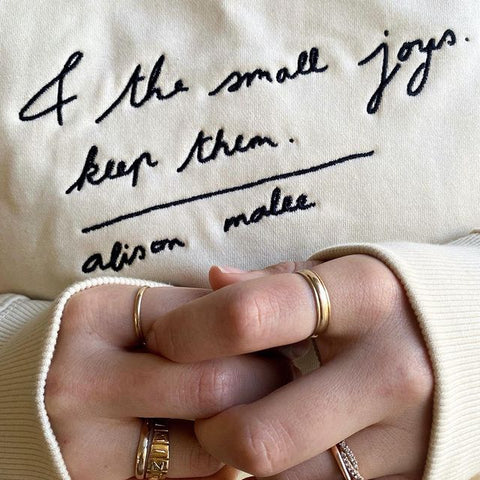 & the small joys.
keep them.
alison malee